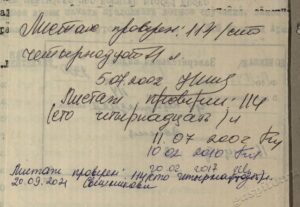 Листаж проверен: 114 /сто
четырнадцать/ л
Листаж проверен: 114
(сто четырнадцать) л
11.07 2002
10 02 2010
20 02 2017
Листаж проверен: 114(сто четырнадцать)л.
20.09.2021